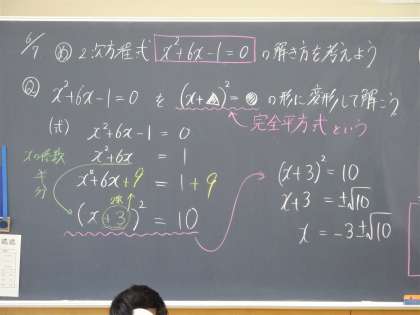 6/7 ㋱ 2次方程式 x²+6x-1=0 の解き方を考えよう
Ⓠ x²+6x-1=0 を (x+▲)²=● の形に変形して解こう
完全平方式という
(式) x²+6x-1=0
xの係数 x²+6x = 1
半分 x²+6x+9 = 1+9
2乗
(x+3)² = 10
(x+3)² = 10
x+3 = ±√10
x = -3±√10